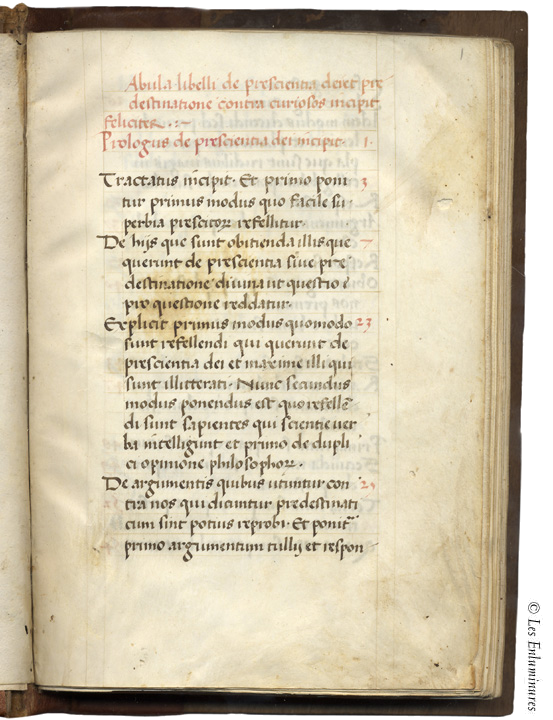 1
Abula libelli de prescientia dei et pre-
destinatione contra curiosos incipit
feliciter.
Prologus de prescientia dei incipit. 1.
Tractatus incipit. Et primo poni 3
tur primus modus quo facile su-
perbia prescitoꝝ refellitur.
De hijs que sunt obitienda illis que 7
querunt de prescientia sive pre-
destinatione divina ut questio
pro questione reddatur.
Explicit primus modus quomodo 23
sunt refellendi qui querunt de
prescientia dei et maxime illi qui
sunt illitterati. Nunc secundus
modus ponendus est quo refellē-
di sunt sapientes qui scientie ver
ba intelligunt et primo de dupli
ci opinione philosophoꝝ.
De argumentis quibus utuntur con
tra nos qui dicuntur predestinati
cum sint potius reprobi. Et ponit
primo argumentum tullij et respon-
© Les Enluminures